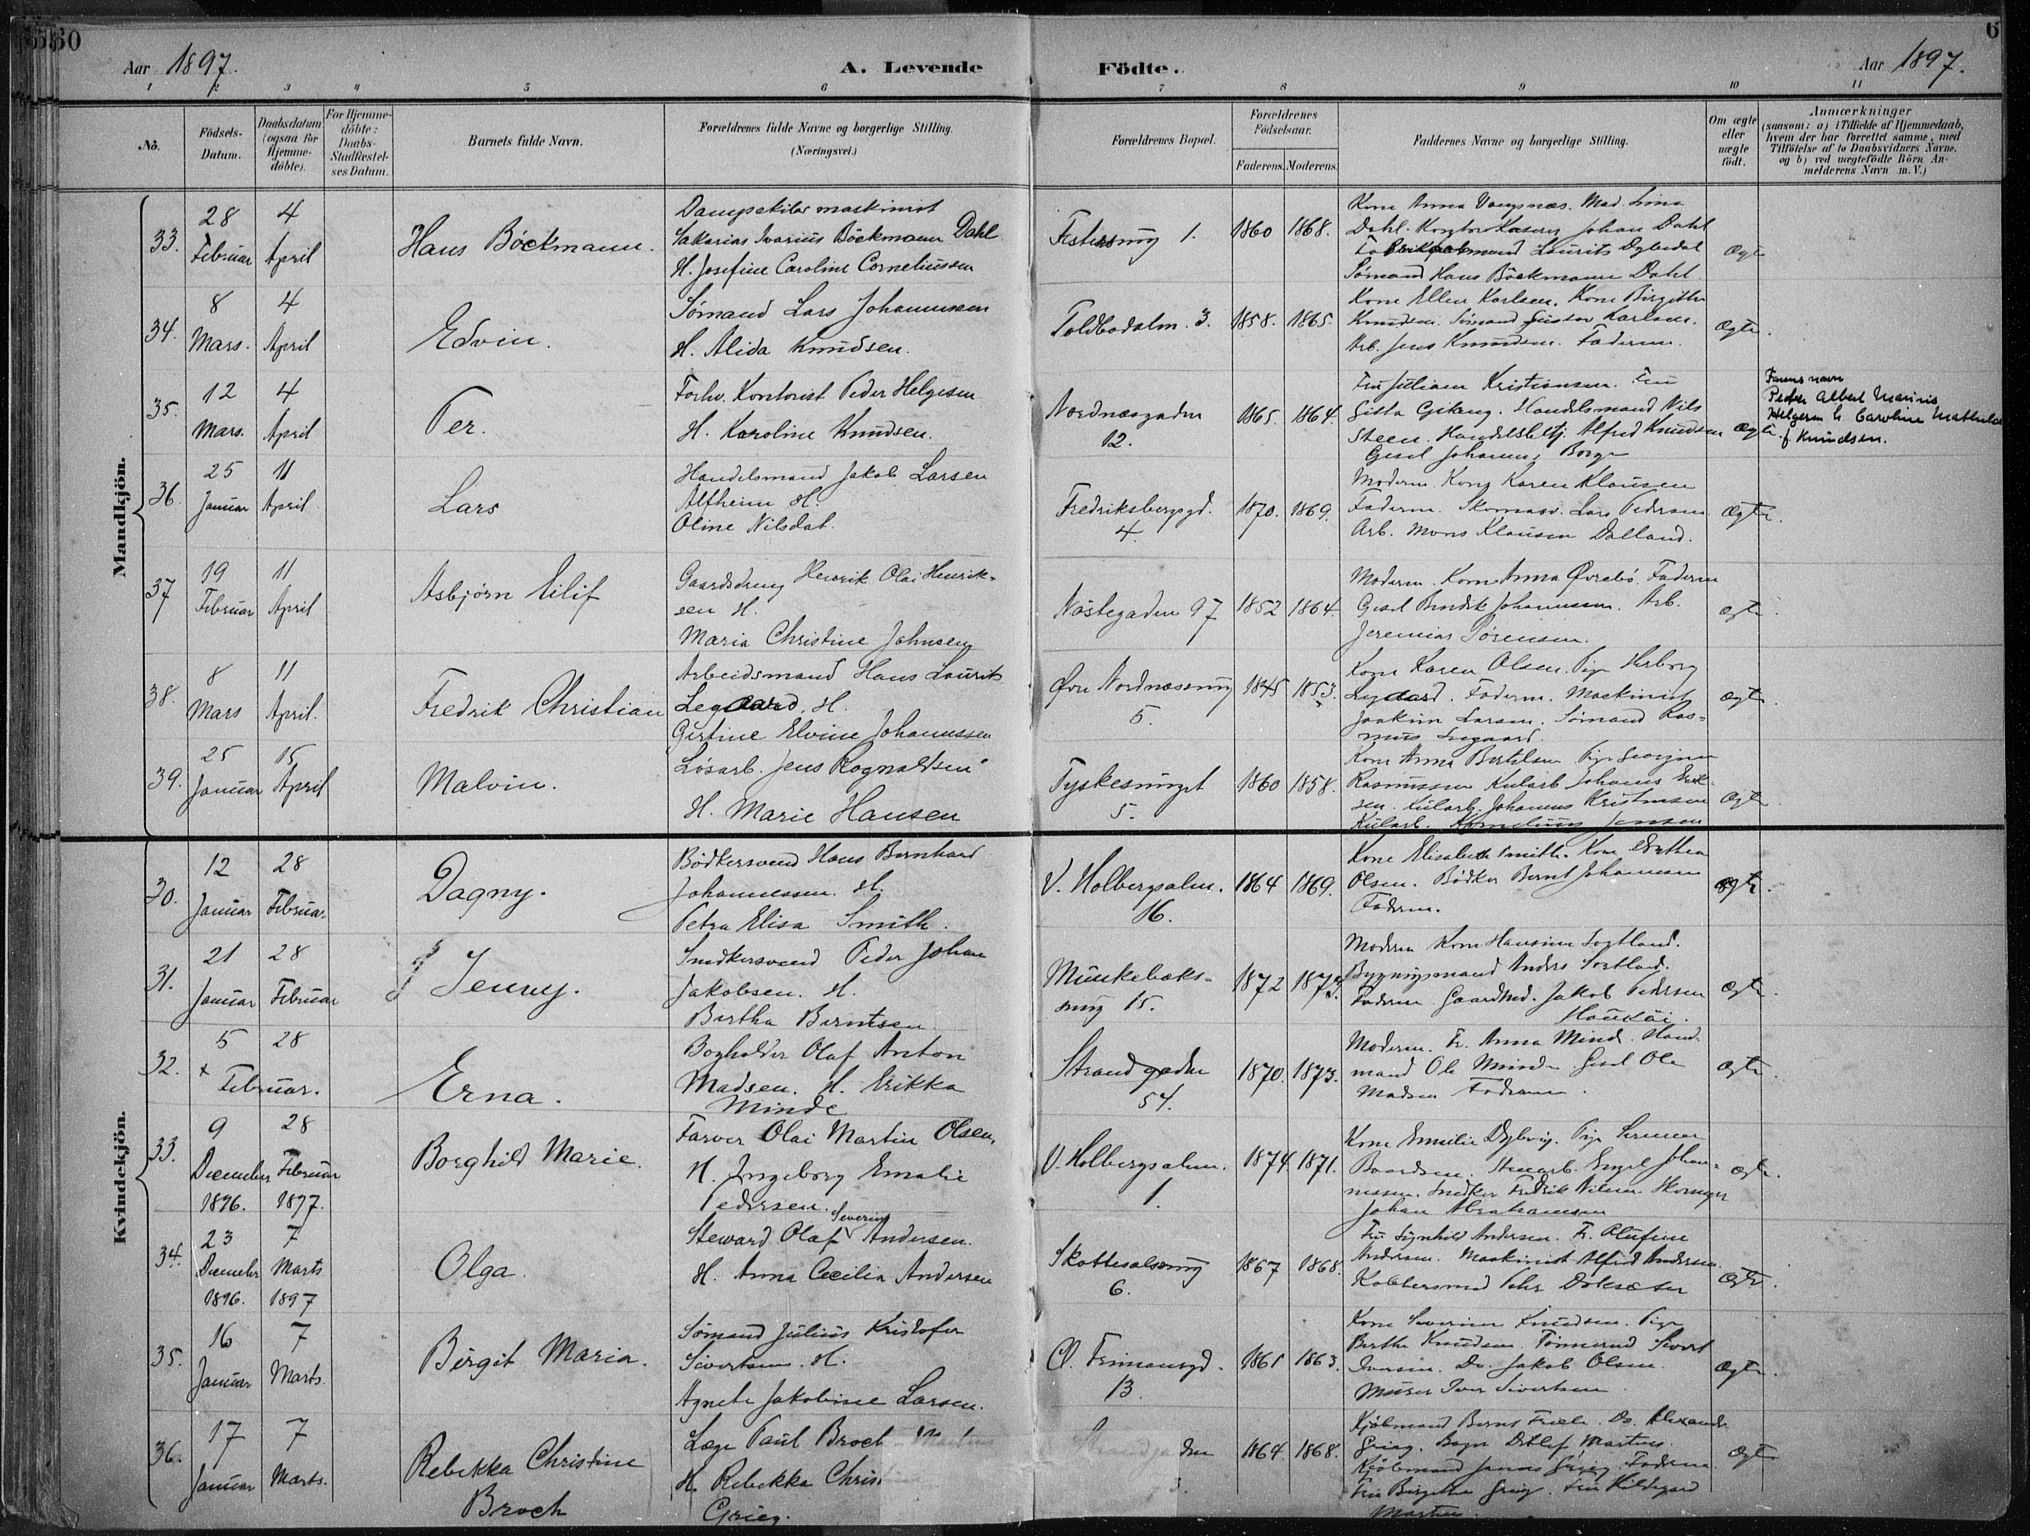 60
6
Aar 1897.
A. Levende
Födte.
Aar 1897.
1 2 3 4 5 6 7 8 9 10 11
No.
Födsels-
Datum.
Daabsdatum
(ogsaa for
Hjemme-
döbte).
For Hjemme-
döbte:
Daabs-
Stadfæstel-
ses Datum.
Barnets fulde Navn.
Forældrenes fulde Navne og borgerlige Stilling.
(Næringsvei.)
Forældrenes Bopæl.
Forældrenes
Födselsaar.
Faderens. Moderens.
Faddernes Navne og borgerlige Stilling.
Om ægte
eller
uægte
födt.
Anmærkninger
(saasom: a) i Tilfælde af Hjemmedaab,
hvem der har forrettet samme, med
Tilföielse af to Daabsvidners Navne.
og b) ved uægtefödte Börn An-
melderens Navn m. V.)
Mandkjön.
33. 28 Februar 4 April
Hans Böckmann.
maskinist
Sakarias Ivarius Böckmann Dahl
H. Josefine Caroline Corneliussen
1. 1860 1868.
Kone Anna Mad.
Dahl. Johan Dahl
Laurits
Sømand Hans Böckmann Dahl
Ægte
34. 8 Mars. 4 April
Edvin.
Sømand Lars Johannesen
H. Alida Knudsen.
Toldbodalm. 3. 1858. 1865.
Kone Ellen Karlsen. Kone Birgitte
Knudsen. Sømand Gustav Karlsen.
Arb. Jens Knudsen. Faderen.
Ægte.
35. 12 Mars. 4 April
Per.
Forhv. Kontorist Peder Helgesen
H. Karoline Knudsen.
Nordnæsgaden
12. 1865. 1864.
Fru Juliane Kristiansen. Fru
Handelsmand Nils
Steen. Handelsbetj. Alfred Knudsen
Gesel Johannes Borge
Ægte.
Farens navn
Peder Albert Marinus
Helgesen h. Caroline Mathilde
f. Knudsen.
36. 25 Januar 11 April
Lars
Handelsmand Jakob Larsen
Alfheim H.
Oline Nilsdat.
Fredriksbergsgd.
4. 1870. 1869.
Moderen Kone Karen Klausen
Faderen. Skomasv. Lars Pedersen
Arb. Mons Klausen Dalland.
Ægte.
37 19 Februar 11 April
Asbjørn Eilif
Gaardsdreng Henrik Olai Henrik-
sen H.
Maria Christine Johnsen
Nøstegaden 97 1852 1864.
Moderen. Kone Anna Øvrebö. Faderen
Gesel Bendik Johannessen. Arb.
Jeremias Sørensen.
Ægte
38. 8 Mars 11 April.
Fredrik Christian
Arbeidsmand Hans Laurits
Legaard, H.
Gjertine Elvine Johannssen
Øvre Nordnæssmug
5. 1845 1853.
Kone Karen Olsen. Pige Herborg
Legaard. Faderen. Maskinist
Joakim Larsen. Sømand Ras-
mus Legaard.
Ægte.
39. 25 Januar 15 April
Malvin.
Løsarb. Jens Rognaldsen
H. Marie Hansen
Tyskesmuget
5. 1860 1858.
Kone Anna Bertelsen Pige
Rasmussen Kularb Johannes Erik-
sen. Kularb. Johannes Kristensen
Kularb. Kornelius Jensen
Ægte.
Kvindekjön.
30. 12 Januar 28 Februar
Dagny.
Bödkersvend Hans Bernhard
Johannessen. H.
Petra Elisa Smith.
V. Holbergsalm.
16. 1864 1869.
Kone Elisabeth Smith. Kone Dorthea
Olsen. Bödker Bernt Johannesen
Faderen.
Ægte.
31. 21 Januar 28 Februar
Jenny.
Snedkersvend Peder Johan
Jakobsen. H.
Bertha Berntsen
Munkebæks-
smug 15. 1872 1873.
Moderen Kone Hansine Sortland.
Bygningsmand Anders Sortland.
Faderen Gaardbrd. Jakob Pedersen
Ægte.
32. 5 28
Februar.
Erna.
Bogholder Olaf Anton
Madsen. H. Erikka
Minde
Strandgaden
54. 1870. 1873.
Moderen. Fr. Anna Minde. Hand.
mand Ole Minde Gesel Ole
Madsen Faderen.
Ægte.
33. 9 December 1896. 28 Februar 1897.
Borghild Marie.
Farver Olai Martin Olsen,
H. Ingeborg Emalie
Pedersen.
V. Holbergsalm.
1. 1874. 1871.
Kone Emilie Dybvig. Pige
Baardsen. Stenarb. Engel Johan-
nessen. Snedker Fredrik Nilsen.
Johan Abrahamsen
Ægte
34. 23 December 1896. 7 Marts 1897
Olga.
Steward Olaf Severin Andersen.
H. Anna Cecilia Andersen
Skottesalssmug
6. 1867 1868.
Fru Signhild Andersen. Fr. Olufine
Andersen. Maskinist Alfred Andersen
Kobbersmed
Ægte.
35. 16 Januar 7 Marts.
Birgit Maria.
Sømand Julius Kristofer
Sivertsen. H.
Agnete Jakobine Larsen.
13. 1861 1863.
Kone Severine Knudsen. Pige
Berthe Knudsen Tømmermd Sivert
Iversen. Do. Jakob Olsen.
Murer Iver Sivertsen
Ægte.
36. 17 Januar 7 Marts.
Rebekka Christine
Broch
Læge Paul Broch Martens
H. Rebekka Chris
Grieg.
den
3. 1864. 1868.
Kjøbmand Bernt Friele. Do. Alexander
Grieg. Detlef Martens
Kjøbmand Joachim Grieg Faderen
Fru Birgithe Grieg. Fru Hildegard
Martens.
Ægte